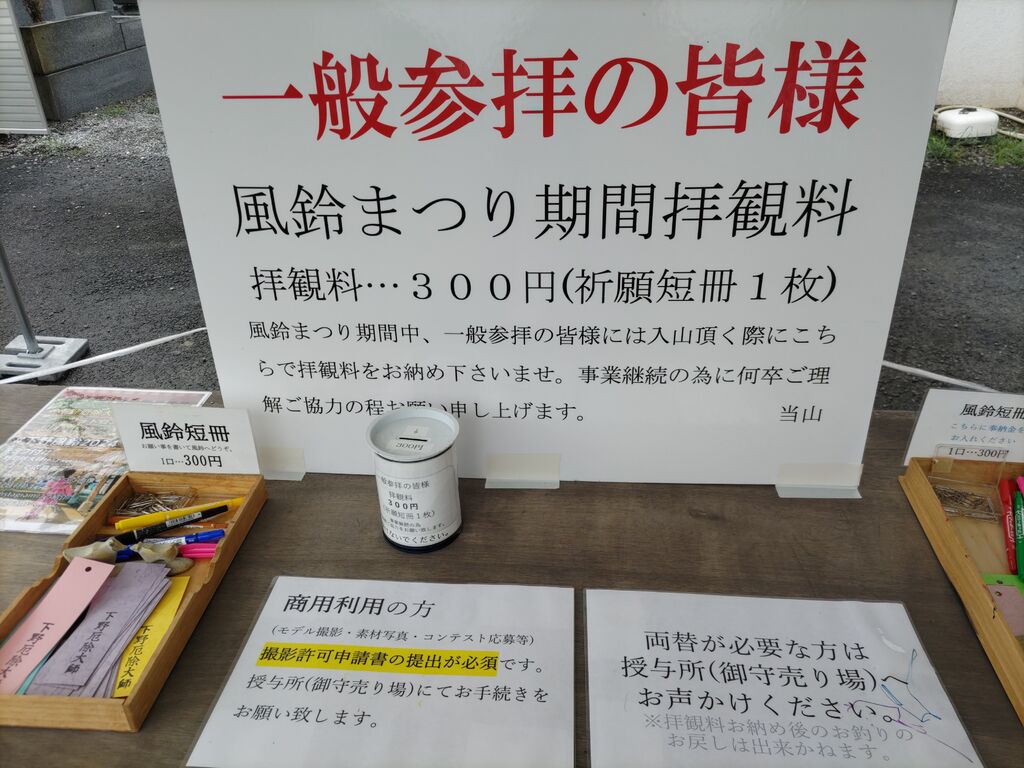 一般参拝の皆様
風鈴まつり期間拝観料
拝観料…３００円(祈願短冊１枚)
風鈴まつり期間中、一般参拝の皆様には入山頂く際にこち
らで拝観料をお納め下さいませ。事業継続の為に何卒ご理
解ご協力の程お願い申し上げます。
当山
風鈴短冊
お願い事を書いて風鈴へどうぞ。
1口…300円
300円
一般参拝の皆様
拝観料
３００円
(祈願短冊１枚)
事業継続の為
でください。
風鈴短冊
こちらに奉納金を
お入れください
1口…300円
下野厄除大師
下野厄除大師
下野厄除大師
商用利用の方
(モデル撮影・素材写真・コンテスト応募等)
撮影許可申請書の提出が必須です。
授与所(御守売り場)にてお手続きを
お願い致します。
両替が必要な方は
授与所(御守売り場)へ
お声かけください。
※拝観料お納め後のお釣りの
お戻しは出来かねます。